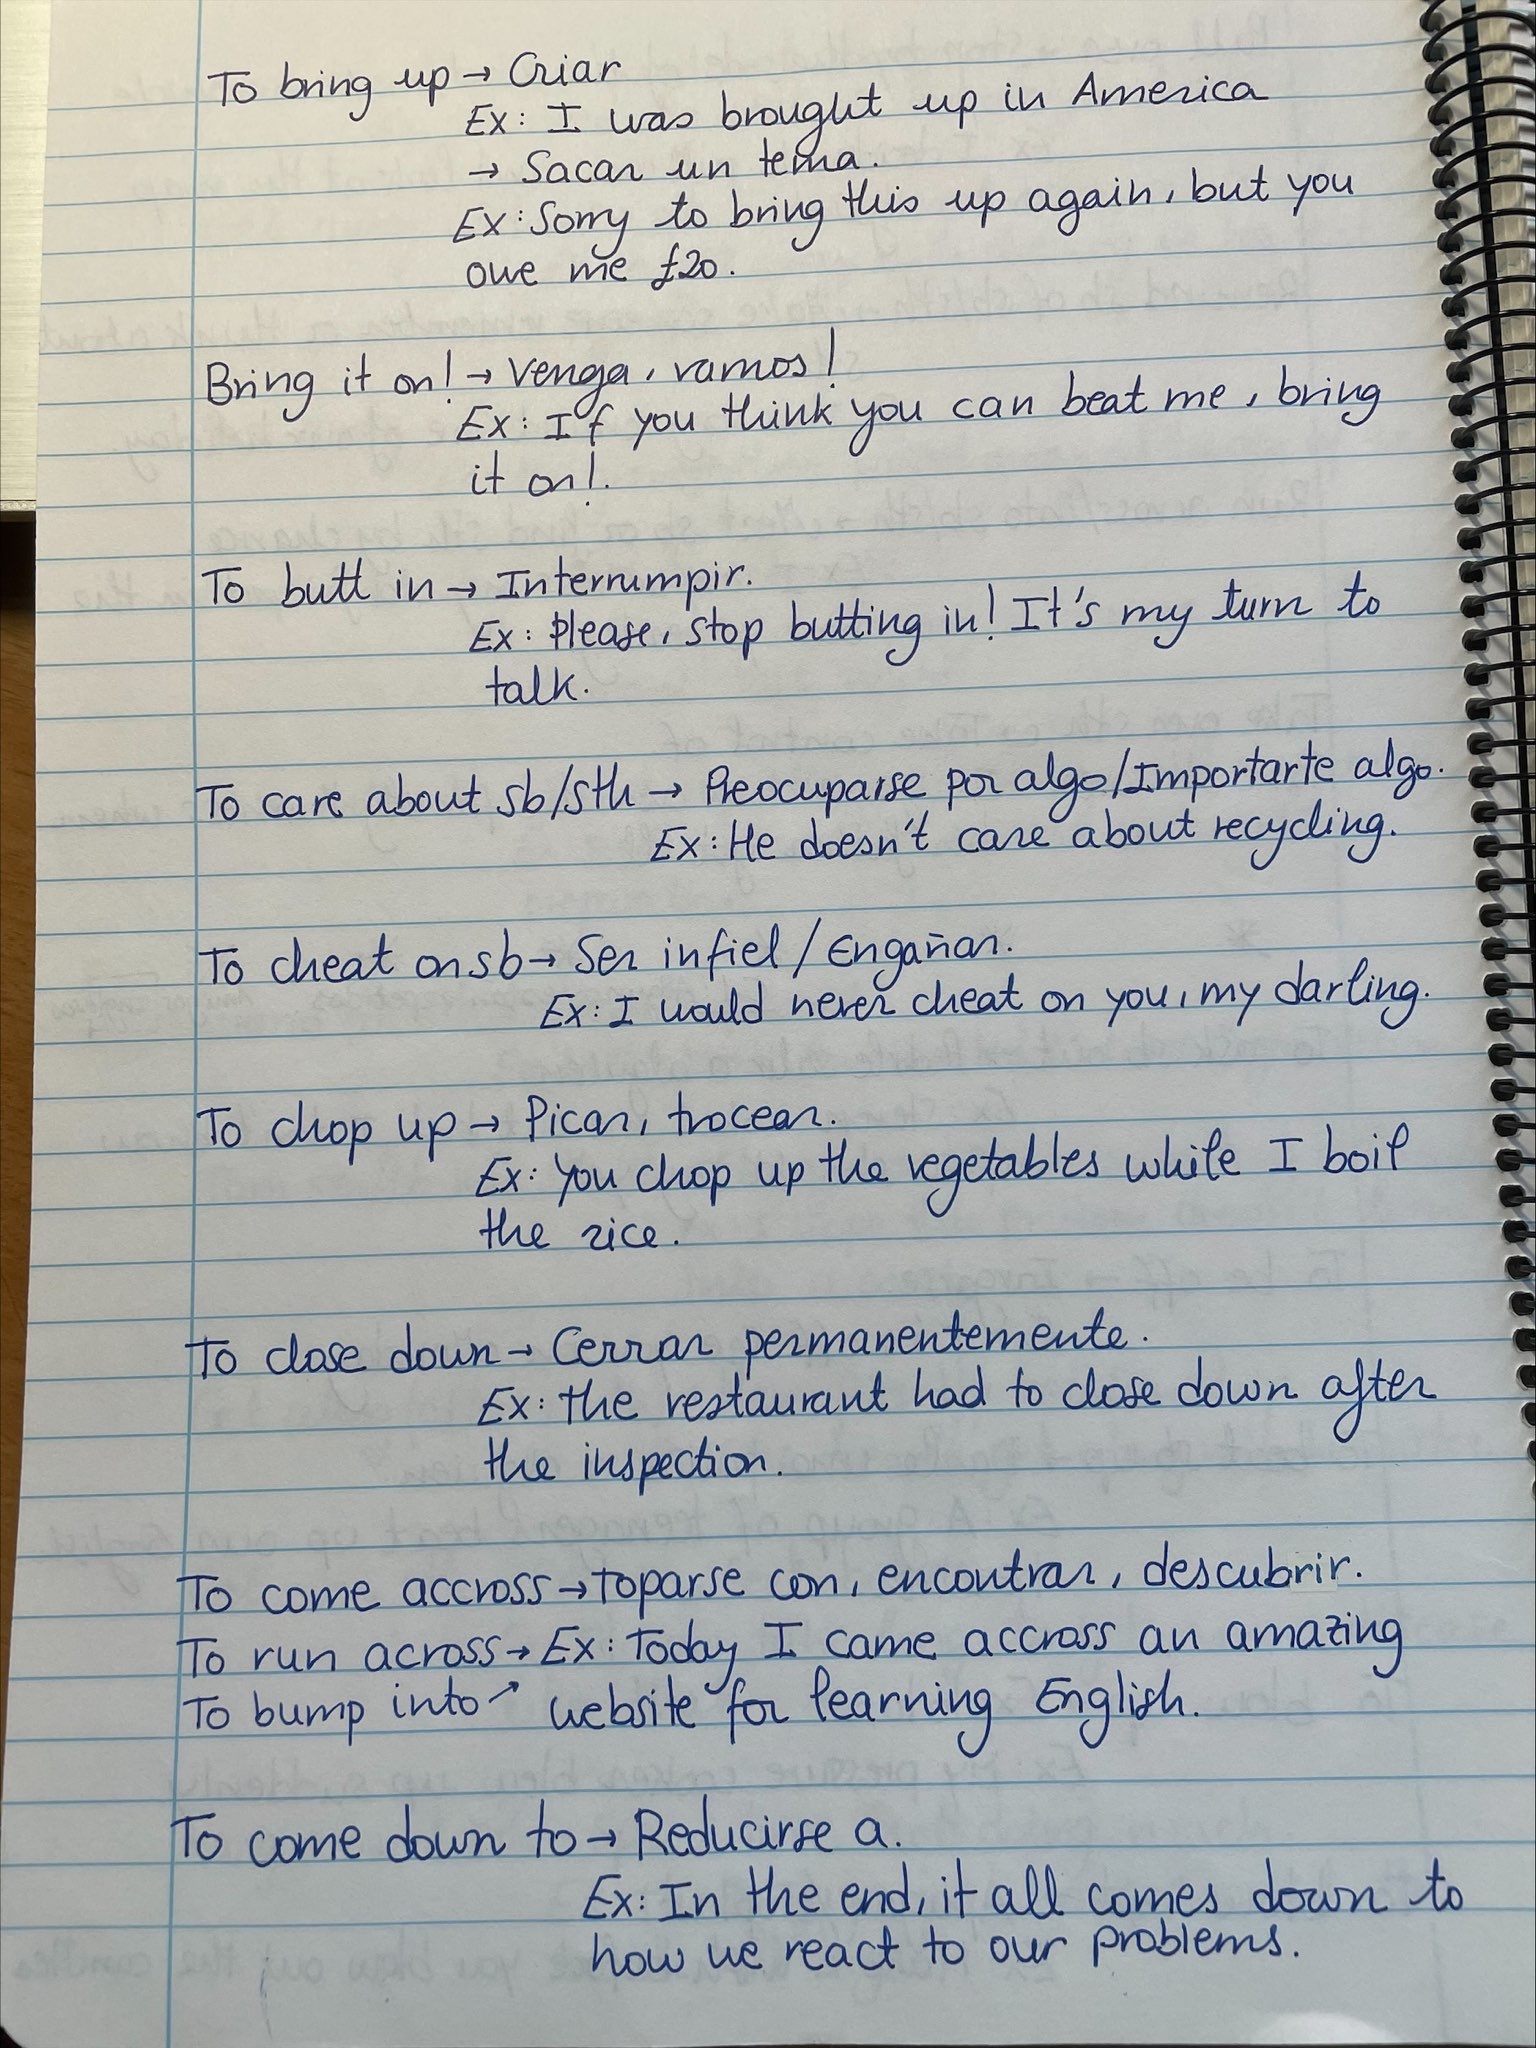 To bring up → Criar
Ex: I was brought up in America
→ Sacar un tema.
Ex: Sorry to bring this up again, but you
owe me £20.
Bring it on! → Venga, vamos!
Ex: If you think you can beat me, bring
it on!.
To butt in → Interrumpir.
Ex: Please, stop butting in! It's my turn to
talk.
To care about sb/sth → Preocuparse por algo/Importarte algo.
Ex: He doesn't care about recycling.
To cheat on sb → Ser infiel / Engañar.
Ex: I would never cheat on you, my darling.
To chop up → Picar, trocear.
Ex: You chop up the vegetables while I boil
the rice.
To close down → Cerrar permanentemente.
Ex: the restaurant had to close down after
the inspection.
To come accross → toparse con, encontrar, descubrir.
To run across → Ex: Today I came accross an amazing
To bump into ↗ website for learning English.
To come down to → Reducirse a.
Ex: In the end, it all comes down to
how we react to our problems.